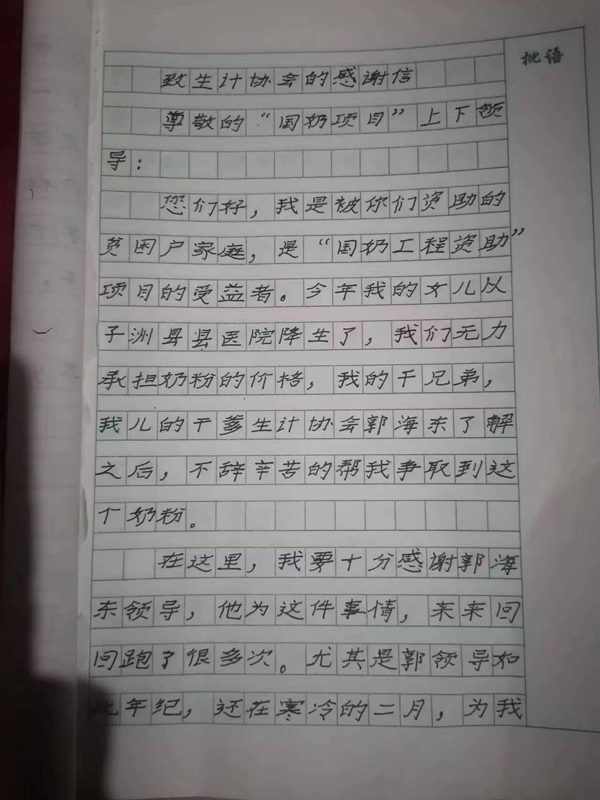 批语
致生计协会的感谢信
尊敬的“国奶项目”上下领
导：
您们好，我是被你们资助的
贫困户家庭，是“国奶工程资助”
项目的受益者。今年我的女儿从
子洲县县医院降生了，我们无力
承担奶粉的价格，我的干兄弟，
我儿的干爹生计协会郭海东了解
之后，不辞辛苦的帮我争取到这
个奶粉。
在这里，我要十分感谢郭海
东领导，他为这件事情，来来回
回跑了很多次。尤其是郭领导如
此年纪，还在寒冷的二月，为我